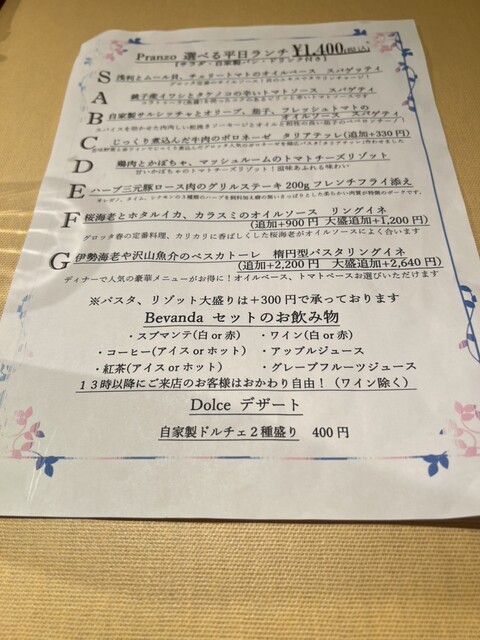 Pranzo 選べる平日ランチ ¥1,400(税込)
(サラダ・自家製パン・ドリンク付き)
S 浅利とムール貝、チェリートマトのオイルベース スパゲッティ
A 銚子産イワシとタケノコの辛いトマトソース スパゲッティ
B 自家製サルシッチャとオリーブ、茄子、フレッシュトマトの
オイルソース スパゲッティ
C じっくり煮込んだ牛肉のボロネーゼ タリアテッレ(追加+330円)
D 鶏肉とかぼちゃ、マッシュルームのトマトチーズリゾット
甘いかぼちゃのトマトチーズリゾット!滋味あふれる味わい
E ハーブ三元豚ロース肉のグリルステーキ 200g フレンチフライ添え
F 桜海老とホタルイカ、カラスミのオイルソース リングイネ
(追加+900円 大盛追加+1,200円)
グロッタ春の定番料理、カリカリに香ばしくした桜海老がオイルソースによく合います
G 伊勢海老や沢山魚介のペスカトーレ 楕円型パスタリングイネ
(追加+2,200円 大盛追加+2,640円)
ディナーで人気の豪華メニューがお得に!オイルベース、トマトベースお選びいただけます
※パスタ、リゾット大盛りは+300円で承っております
Bevanda セットのお飲み物
・スプマンテ(白or赤) ・ワイン(白or赤)
・コーヒー(アイスorホット) ・アップルジュース
・紅茶(アイスorホット) ・グレープフルーツジュース
13時以降にご来店のお客様はおかわり自由!(ワイン除く)
Dolce デザート
自家製ドルチェ2種盛り 400円